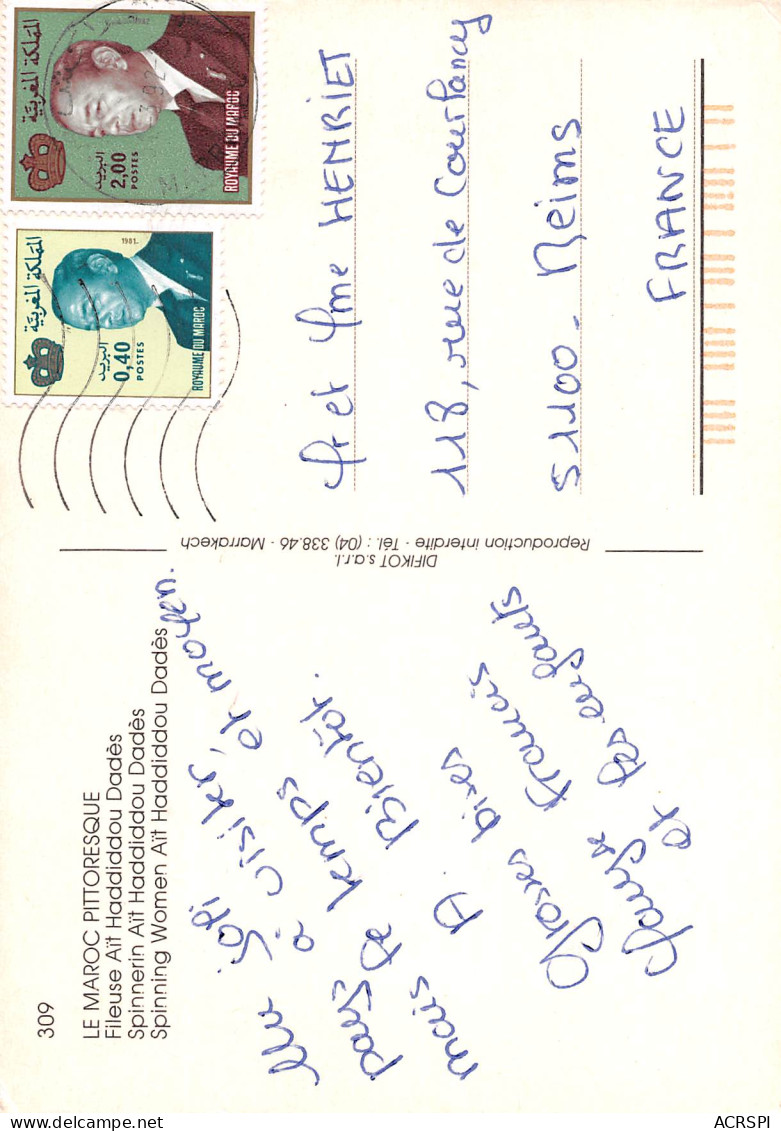 309
LE MAROC PITTORESQUE
Fileuse Aït Haddiddou Dadès
Spinnerin Aït Haddiddou Dadès
Spinning Women Aït Haddiddou Dadès
Un joli
pays à visiter,
mais le temps est moyen.
A Bientôt.
Groses bises
Francis
et les enfants
DIFIKOT s.a.r.l.
Reproduction interdite - Tél. : (04) 338.46 - Marrakech
المملكة المغربية
البريد
2,00
POSTES
ROYAUME DU MAROC
المملكة المغربية
1981.
البريد
0,40
POSTES
ROYAUME DU MAROC
Mr et Mme HENRIET
118, rue de Courlancy
51100 - Reims
FRANCE
ACRSPI